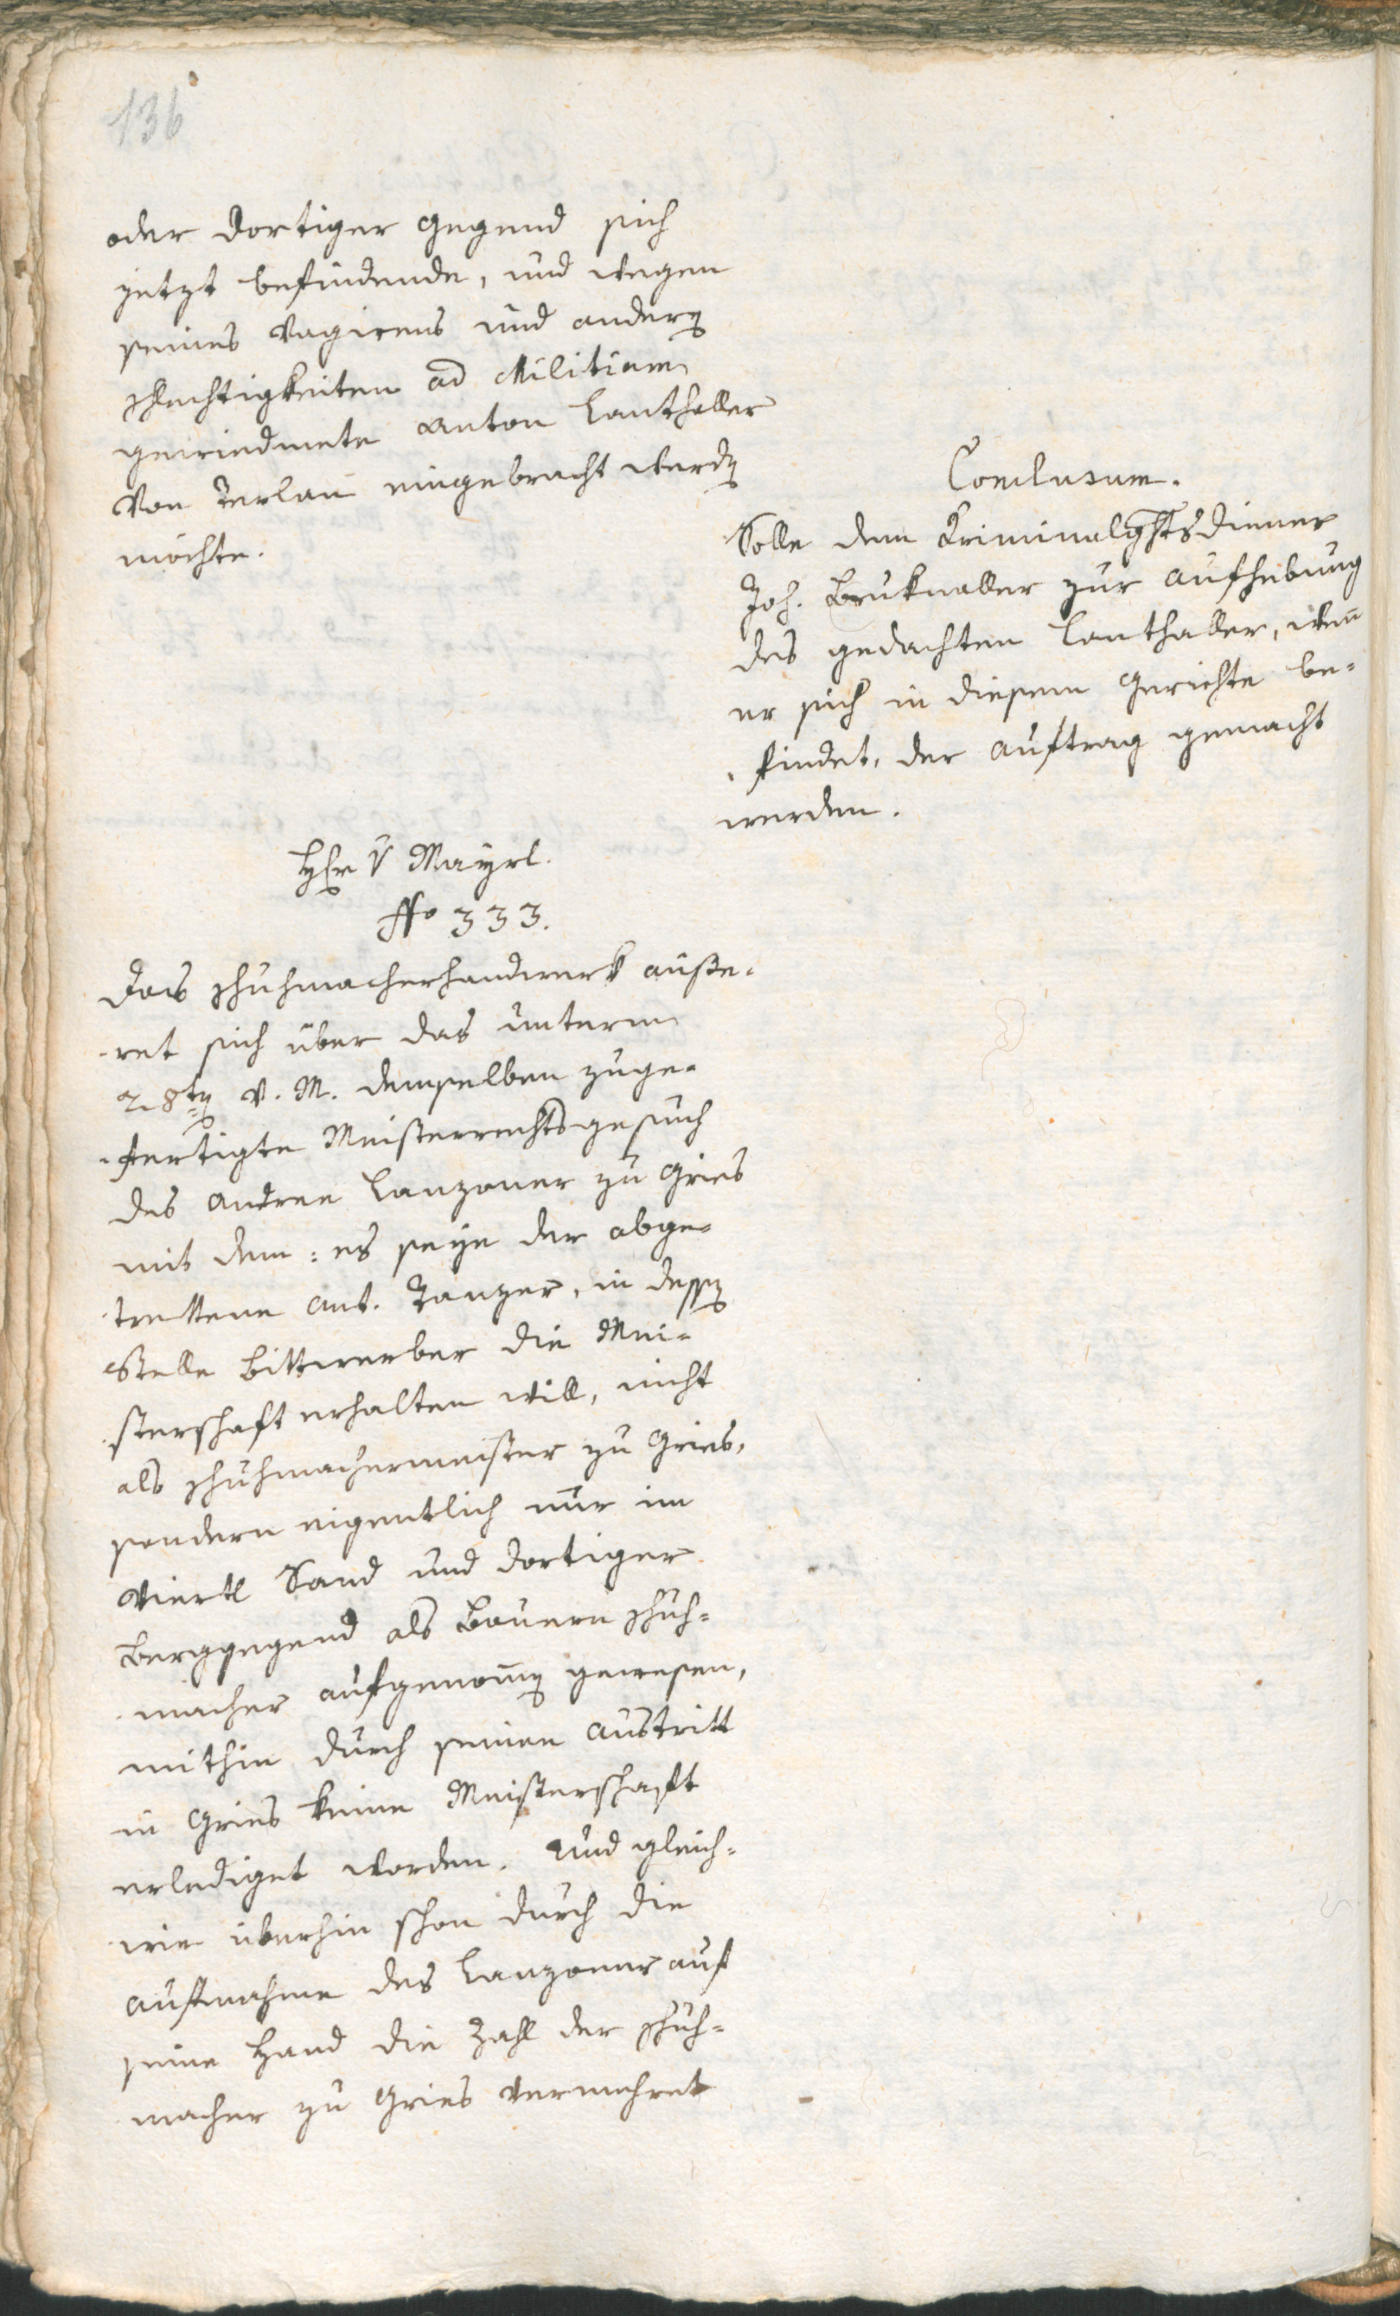 136
oder dortiger Gegend sich
jetzt befindende, und wegen
seines Vagirens und andern
schlechtigkeiten ad Militiam
gewiedmete Anton Lanthaller
von Terlan eingebracht werden
möchte.
Conclusum.
Solle dem Kriminalghtsdiener
Joh. Bruknaller zur Aufhebung
des gedachten Lanthaller, wenn
er sich in diesem Gerichte be=
findet, der Auftrag gemacht
werden.
Hr v Mayrl.
No 333.
Das Schuhmacherhandwerk äuße=
ret sich über das unterm
28ten v. M. demselben zuge=
fertigte Meisterrechtsgesuch
des Andree Lanzoner zu Gries
mit dem: es seye der abge=
trettene Ant. Tanzer, in dessen
Stelle Bittwerber die Mei=
sterschaft erhalten will, nicht
als Schuhmachermeister zu Gries,
sondern eigentlich nur im
Viertl Sand und dortiger
Berggegend als Bauern Schuh=
macher aufgenommen gewesen,
mithin durch seinen Austritt
in Gries keine Meisterschaft
erlediget worden. Und gleich=
wie überhin schon durch die
Aufnahme des Lanzoner auf
seine Hand die Zahl der Schuh=
macher zu Gries vermehret